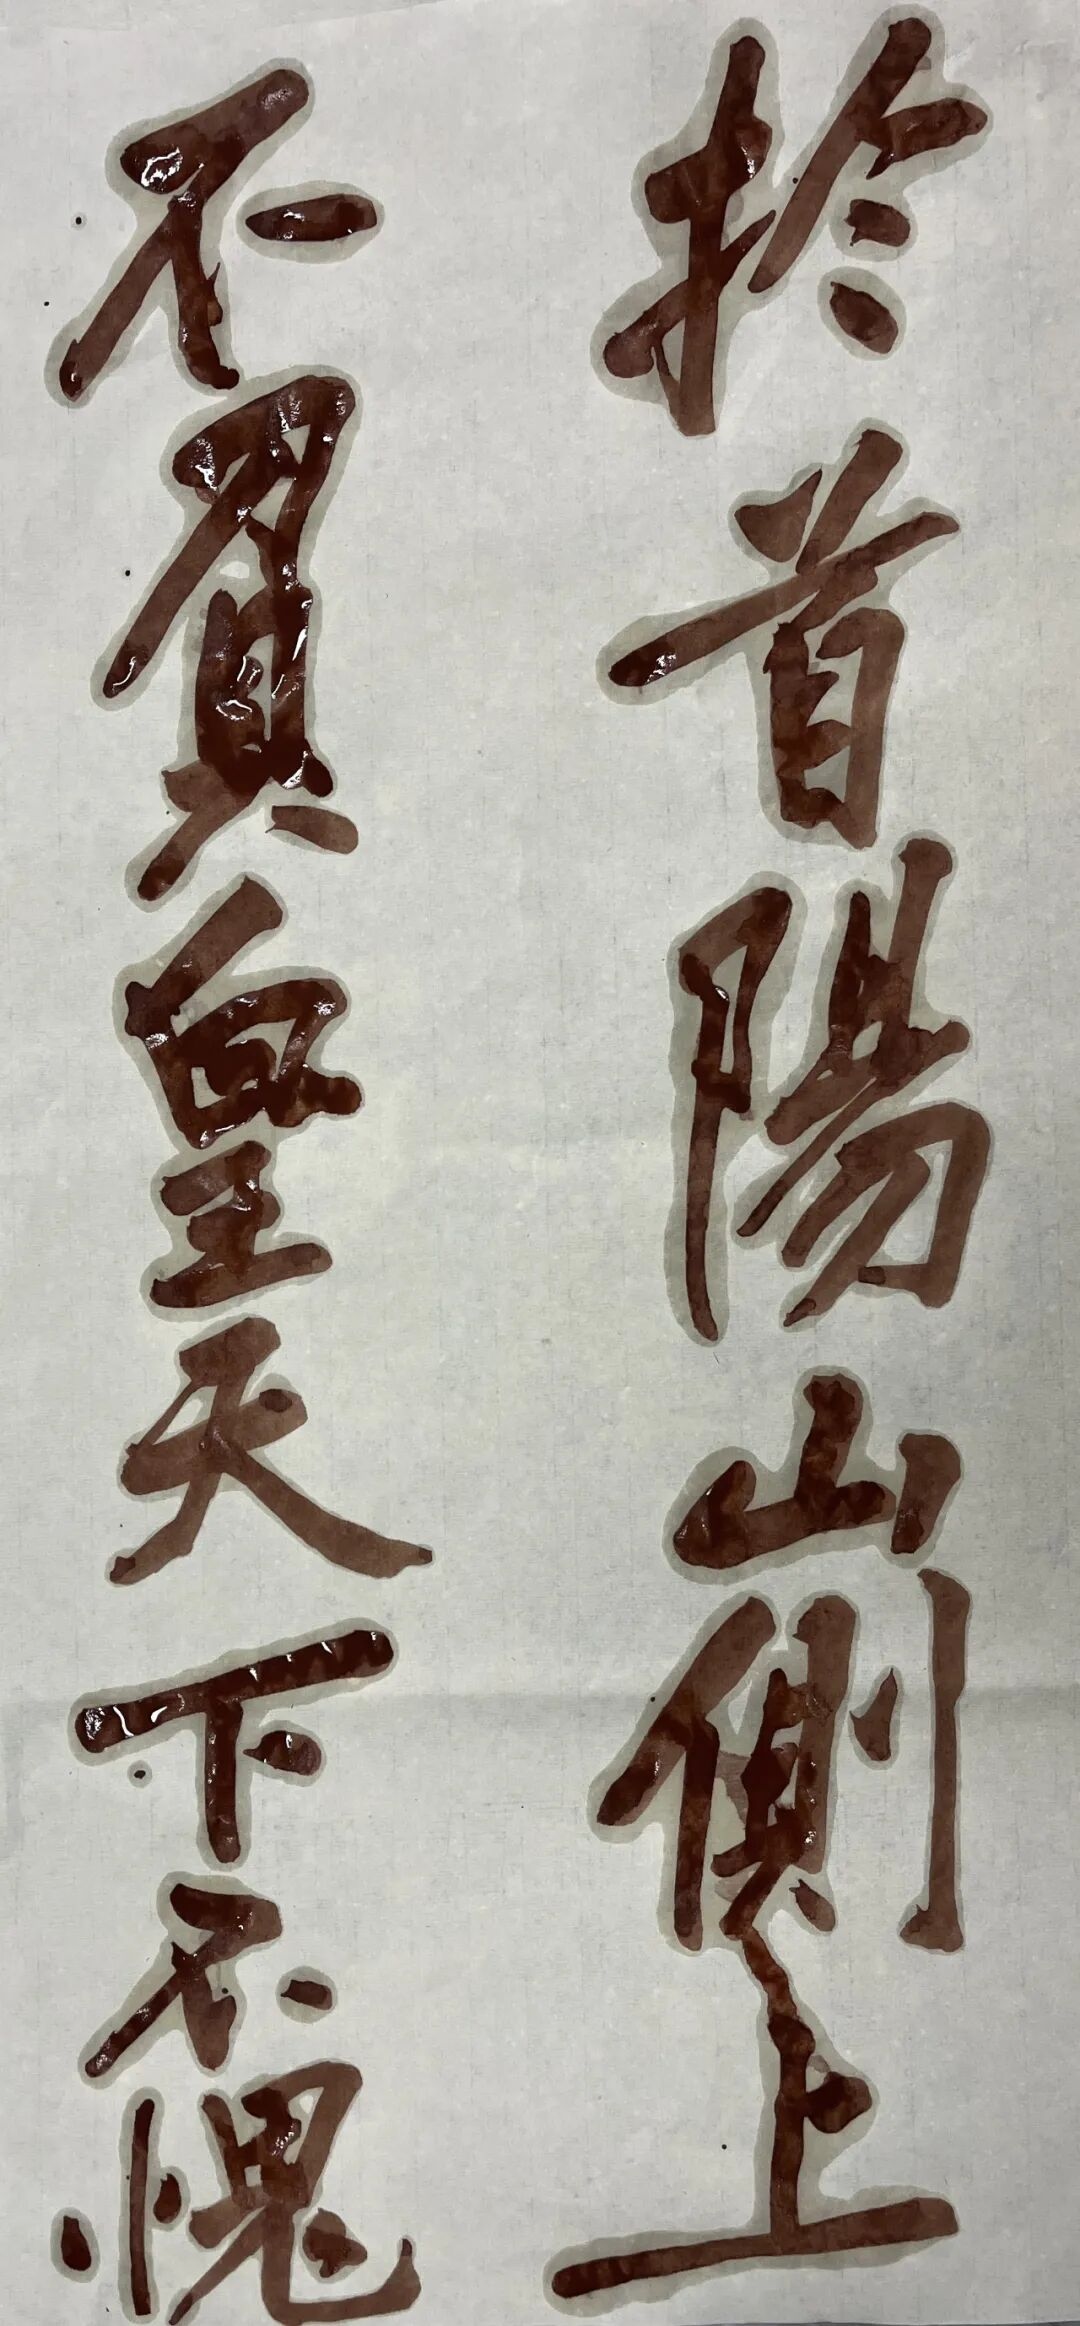 於首陽山側上
不負皇天下不愧